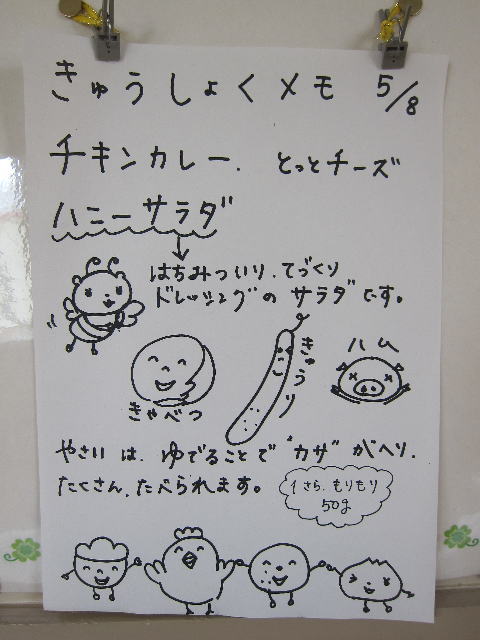 きゅうしょくメモ 5/8
チキンカレー. とっとチーズ
ハニーサラダ
はちみついり.てづくり
ドレッシングの サラダです。
きゃべつ
きゅうり
ハム
やさいは、ゆでることで"カサ"がへり.
たくさん.たべられます。
1さら.もりもり
50g